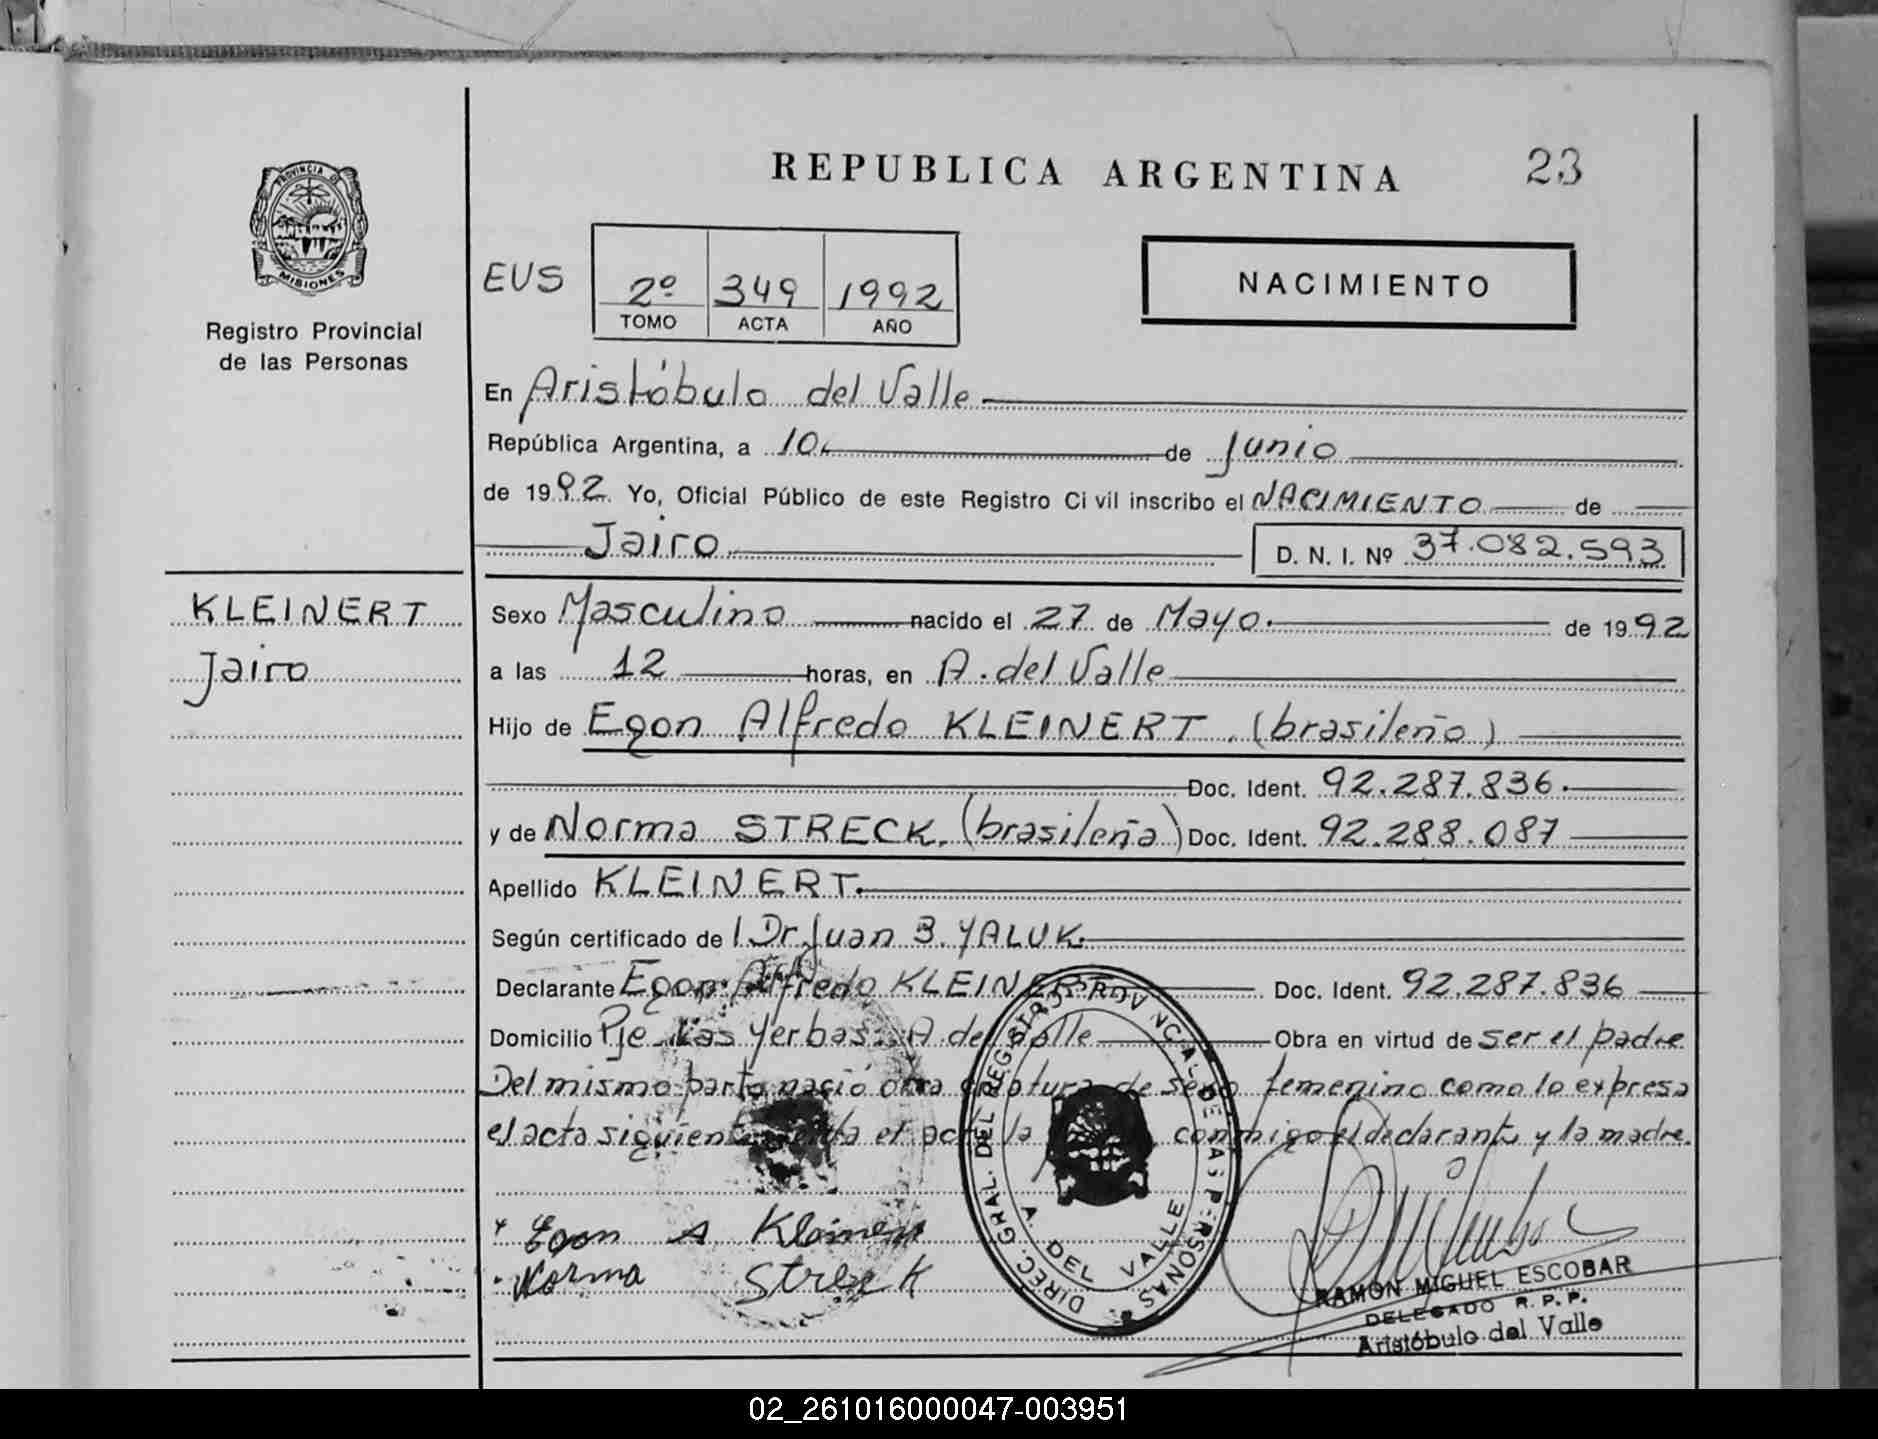 REPUBLICA ARGENTINA 23
PROVINCIA DE
MISIONES
Registro Provincial
de las Personas
EUS 2º 349 1992
TOMO ACTA AÑO
NACIMIENTO
En Aristóbulo del Valle
República Argentina, a 10 de Junio
de 1992. Yo, Oficial Público de este Registro Ci vil inscribo el NACIMIENTO de
Jairo D. N. I. Nº 37.082.593
KLEINERT
Jairo
Sexo Masculino nacido el 27 de Mayo. de 1992
a las 12 horas, en A. del Valle
Hijo de Egon Alfredo KLEINERT. (brasileño)
Doc. Ident. 92.287.836.
y de Norma STRECK. (brasileña) Doc. Ident. 92.288.087
Apellido KLEINERT.
Según certificado de l Dr. Juan B. YALUK.
Declarante Egon Alfredo KLEINERT Doc. Ident. 92.287.836
Domicilio Pje Las Yerbas. A del Valle Obra en virtud de ser el padre
Del mismo parto nació otra criatura de sexo femenino como lo expresa
el acta siguiente el acta la conmigo el declarante y la madre.
Egon A Kleinert
Norma Streck
DIREC. GRAL. DEL REGISTRO PROVINCIAL DE LAS PERSONAS
A. DEL VALLE
RAMON MIGUEL ESCOBAR
DELEGADO R. P. P.
Aristóbulo del Valle
02_261016000047-003951